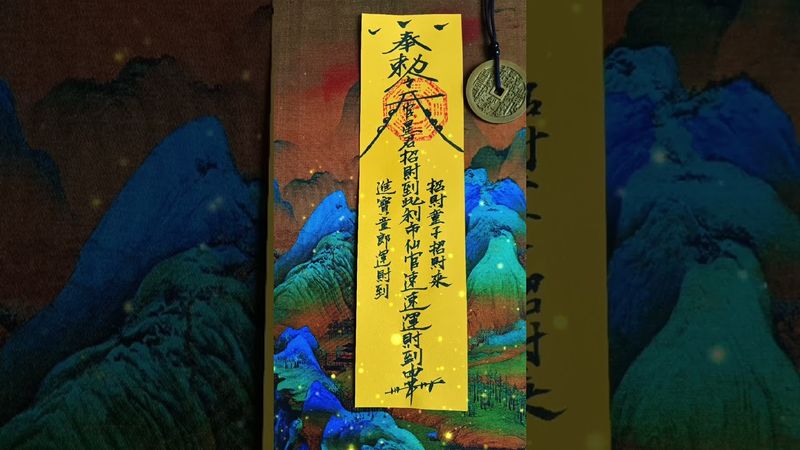 奉勅令
官星君招財到此利市仙官速速運財到
招財童子招財來
進寶童郎運財到